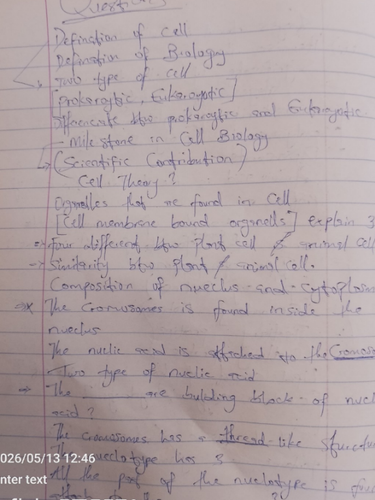 Questions
Definition of Cell
Definition of Biology
Two type of cell
[Prokaryotic, Eukaryotic]
btw prokaryotic and Eukaryotic
- Mile stone in Cell Biology
(Scientific Contribution)
Cell Theory?
Organelles that we found in Cell
[Cell membrane bound organells] Explain 3
Four different btw Plant cell & animal Cell
Similarity btw Plant & animal cell.
Composition of nuecleus and Cytoplasm
The Cromosomes is found inside the
nueclus
The nuclic acid is attached to the Cromos
Two type of nuclic acid
The ____ are building block of nucl
acid?
The Cromosomes has a thread like Structur
The nucleotype has 3
All the part of the nucleotype is
026/05/13 12:46
nter text